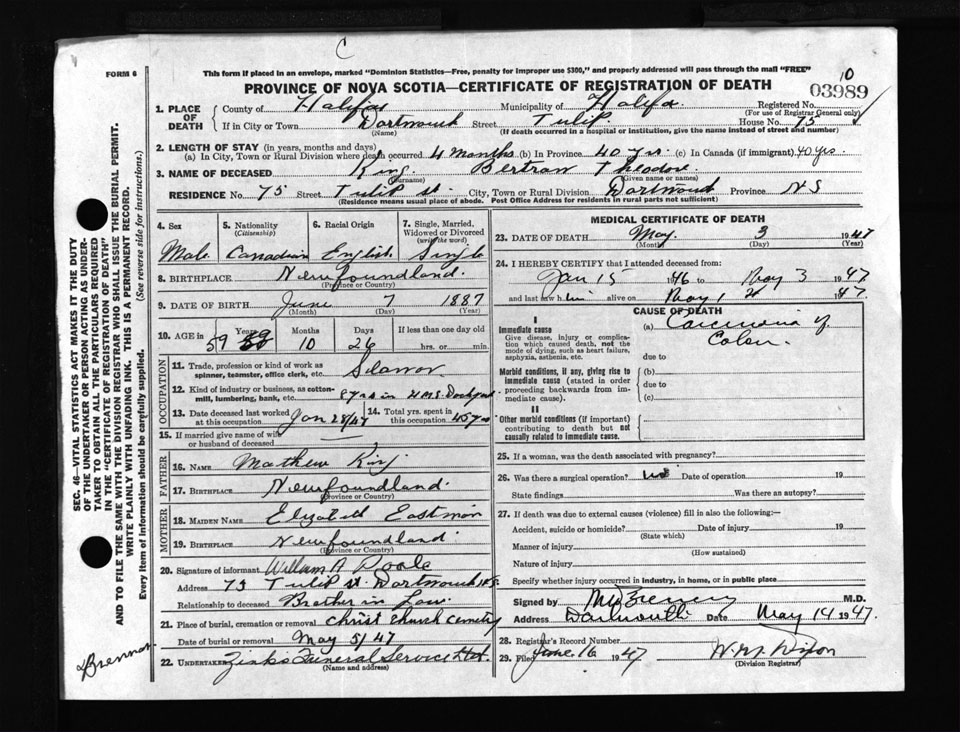 C
FORM 6
This form if placed in an envelope, marked "Dominion Statistics—Free, penalty for improper use $300," and properly addressed will pass through the mail "FREE"
10
PROVINCE OF NOVA SCOTIA—CERTIFICATE OF REGISTRATION OF DEATH
03989
1. PLACE OF DEATH County of Halifax Municipality of Halifax Registered No.
(For use of Registrar General only)
If in City or Town Dartmouth Street Tulip House No. 75
(Name) (If death occurred in a hospital or institution, give the name instead of street and number)
2. LENGTH OF STAY (in years, months and days)
(a) In City, Town or Rural Division where death occurred 4 months (b) In Province 40 yrs. (c) In Canada (if immigrant) 40 yrs.
3. NAME OF DECEASED King Bertram Theodore
(Surname) (Given name or names)
RESIDENCE No. 75 Street Tulip St. City, Town or Rural Division Dartmouth Province N S
(Residence means usual place of abode. Post Office Address for residents in rural parts not sufficient)
4. Sex 5. Nationality (Citizenship) 6. Racial Origin 7. Single, Married, Widowed or Divorced (write the word)
Male Canadian English Single
8. BIRTHPLACE Newfoundland.
(Province or Country)
9. DATE OF BIRTH June 7 1887
(Month) (Day) (Year)
10. AGE in Years Months Days If less than one day old
59 10 26 hrs. or min.
OCCUPATION
11. Trade, profession or kind of work as spinner, teamster, office clerk, etc.
12. Kind of industry or business, as cotton-mill, lumbering, bank, etc. 8 yrs in H.M.S. Dockyard
13. Date deceased last worked at this occupation Jan 28/47 14. Total yrs. spent in this occupation 45 yrs
15. If married give name of wife or husband of deceased
FATHER
16. NAME Mathew King
17. BIRTHPLACE Newfoundland.
(Province or Country)
MOTHER
18. MAIDEN NAME Elizabeth Eastman
19. BIRTHPLACE Newfoundland
(Province or Country)
20. Signature of informant William A Poole
Address 73 Tulip St. Dartmouth N.S.
Relationship to deceased Brother in Law.
21. Place of burial, cremation or removal Christ Church Cemetry
Date of burial or removal May 5/47
22. UNDERTAKER Zink's Funeral Service Ltd.
(Name and address)
MEDICAL CERTIFICATE OF DEATH
23. DATE OF DEATH May 3 1947
(Month) (Day) (Year)
24. I HEREBY CERTIFY that I attended deceased from:
Jan 15 1946 to May 3 1947
and last saw him alive on May 1 1947.
CAUSE OF DEATH
I
Immediate cause (a) Carcinoma of Colon.
Give disease, injury or complication which caused death, not the mode of dying, such as heart failure, asphyxia, asthenia, etc.
due to
Morbid conditions, if any, giving rise to immediate cause (stated in order proceeding backwards from immediate cause).
(b)
due to
(c)
II
Other morbid conditions (if important) contributing to death but not causally related to immediate cause.
25. If a woman, was the death associated with pregnancy?
26. Was there a surgical operation? no Date of operation 19
State findings Was there an autopsy?
27. If death was due to external causes (violence) fill in also the following:—
Accident, suicide or homicide? Date of injury 19
(State which)
Manner of injury
(How sustained)
Nature of injury
Specify whether injury occurred in industry, in home, or in public place
Signed by M.D.
Address Dartmouth Date May 14 1947
28. Registrar's Record Number
29. Filed June 16 1947
(Division Registrar)
SEC. 46—VITAL STATISTICS ACT MAKES IT THE DUTY
OF THE UNDERTAKER OR PERSON ACTING AS UNDER-
TAKER TO OBTAIN ALL THE PARTICULARS REQUIRED
IN THE "CERTIFICATE OF REGISTRATION OF DEATH"
AND TO FILE THE SAME WITH THE DIVISION REGISTRAR WHO SHALL ISSUE THE BURIAL PERMIT.
WRITE PLAINLY WITH UNFADING INK. THIS IS A PERMANENT RECORD.
Every item of information should be carefully supplied. (See reverse side for instructions.)
Brennan